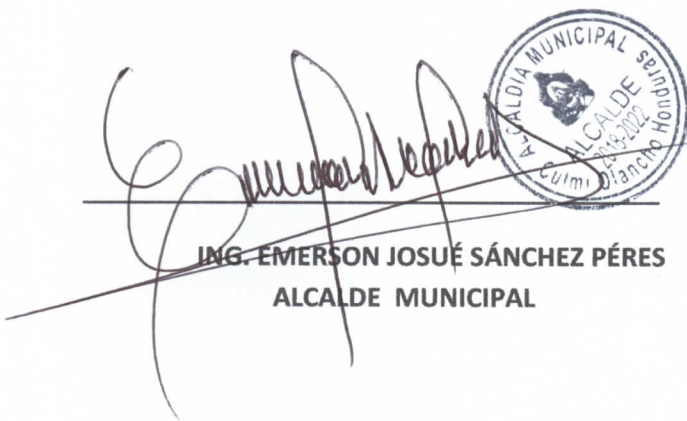 ALCALDIA MUNICIPAL
ALCALDE
2018-2022
Culmi Olancho Honduras
ING. EMERSON JOSUÉ SÁNCHEZ PÉRES
ALCALDE MUNICIPAL